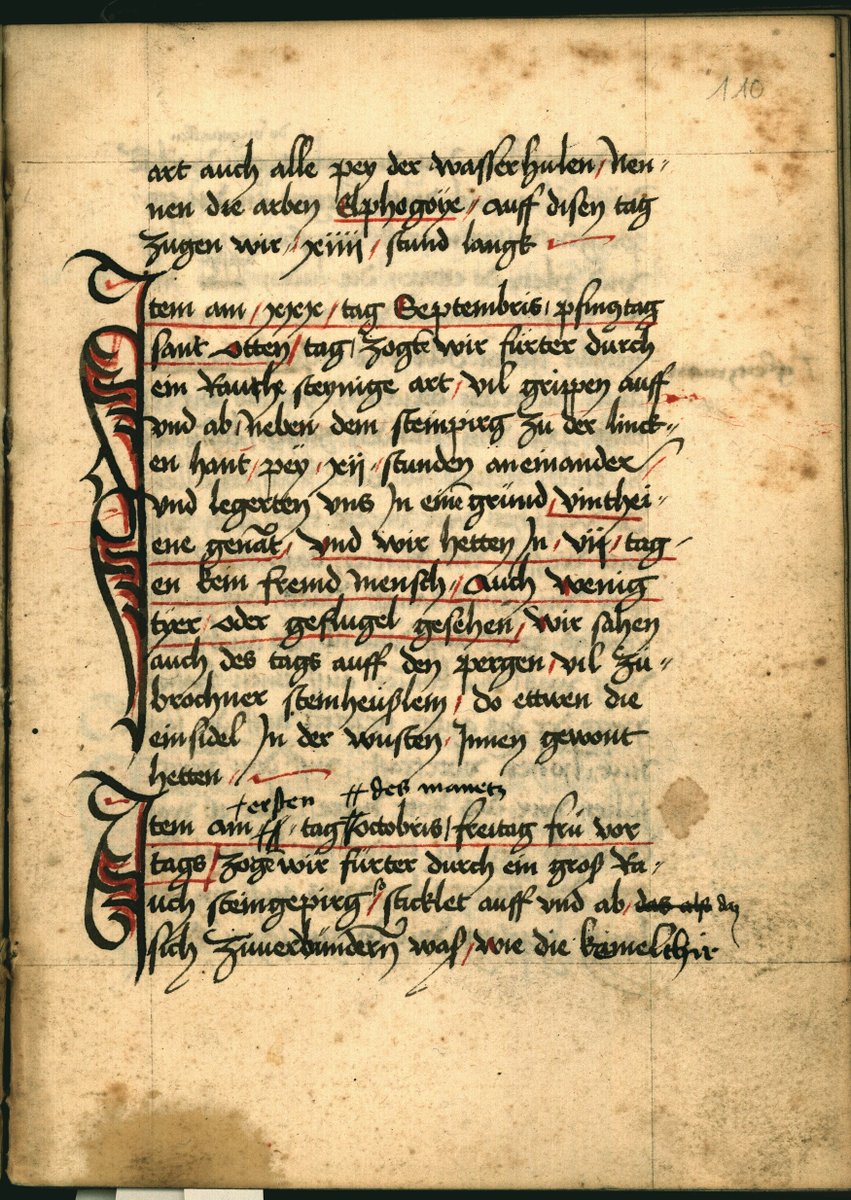 110
art auch alle pey der wasserhulen / Nen-
nen die arben Elphogoÿe / auff disen tag
zugen wir / xiiii / stund langk
Item am / xxx / tag Septembris / pfingztag
sant Otten / tag / zogtē wir fürter durch
ein Rauche steynige art / vil grippen auff
vnd ab / Neben dem steinpirg zu der linck-
en hant / pey / xii / stunden aneinander /
vnd legerten vns In einē gründ / vinthei-
ene genāt / vnd wir hetten In / vii / tag-
en kein fremd mensch / Auch wenig
tyer / oder geflugel gesehen / wir sahen
auch des tags auff den pergen / vil zu-
brochner steinheüßlein / do ettwen die
einsidel In der wusten / Innen gewont
hetten
ersten des manetz
Item am / tag octobris / freitag frü vor
tags / zogē wir fürter durch ein groß Ra-
uch steingepirg / sticklet auff vnd ab / das als
sich zuuerbundern was / wie die kemelthir